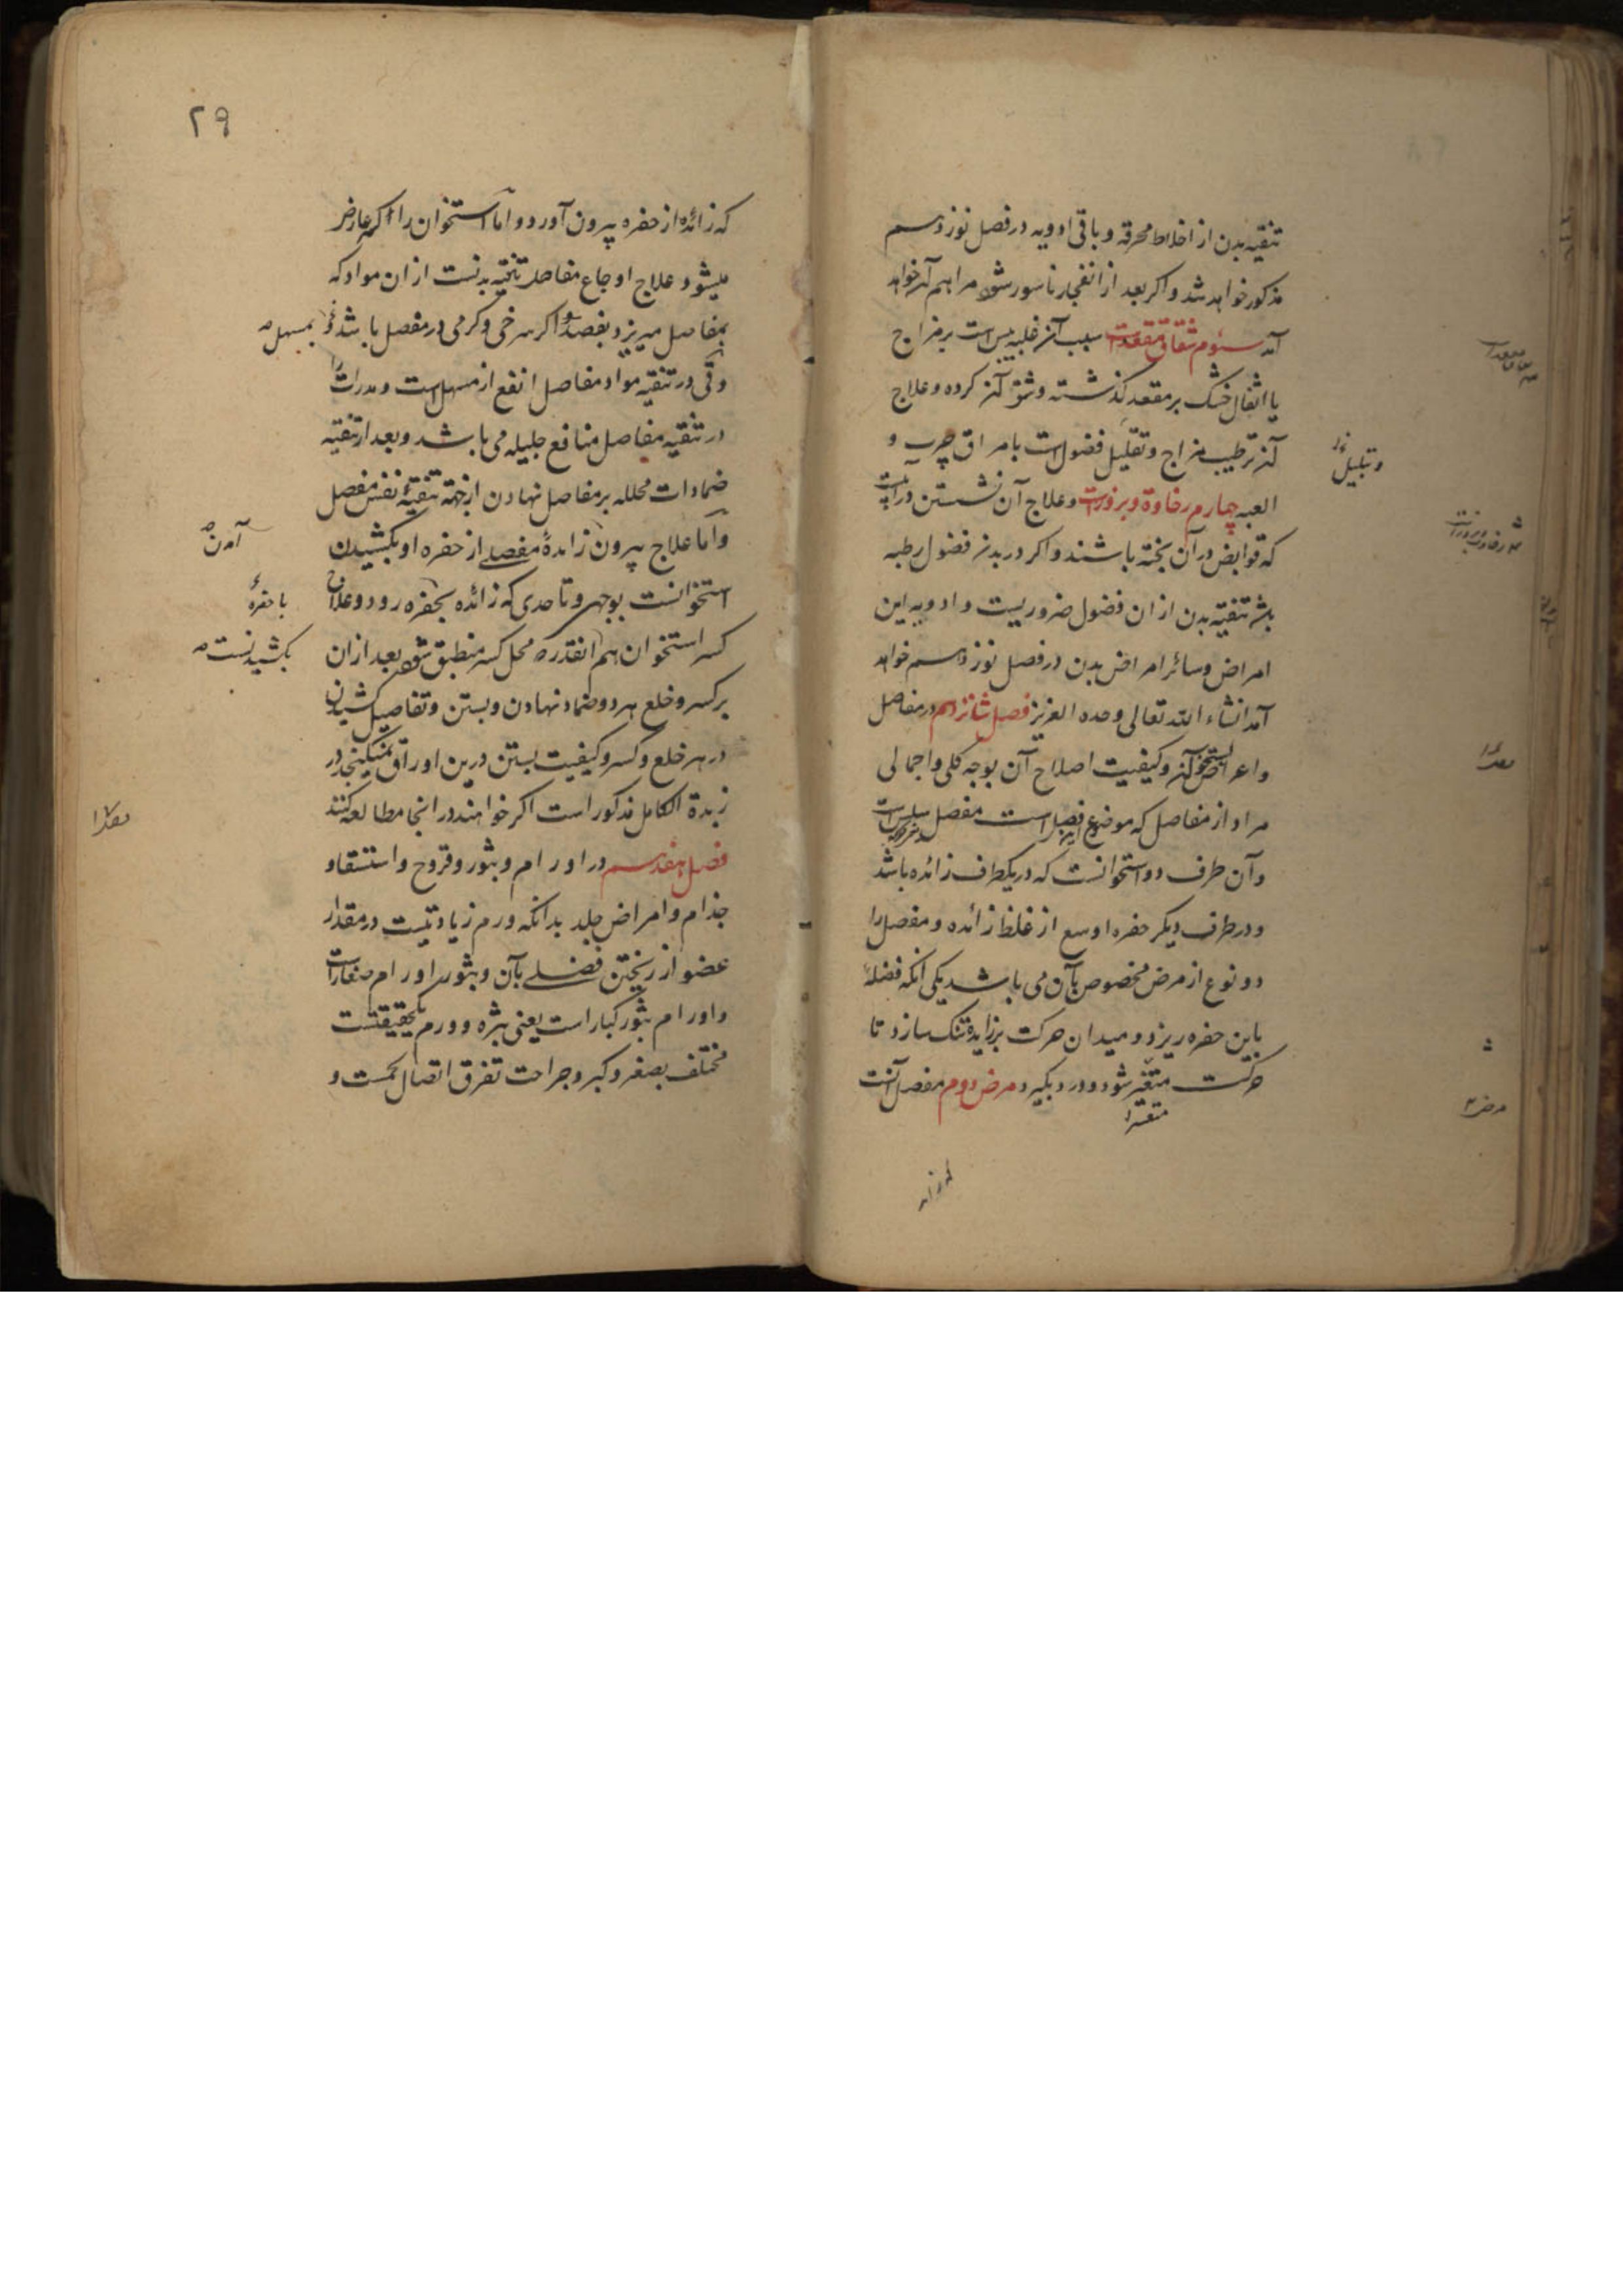 تنقیه بدن از اخلاط محرقه و باقی ادویه در فصل نوزدهم
مذکور خواهد شد و اکر بعد از انفجار ناسور شود مراهم آن خواهد
آمد سئوم شقاق مقعدست سبب آن غلبه یبس است بر مزاج
یا اثفال خشک بر مقعد کذشته و شق آن کرده و علاج
آن ترطیب مزاج و تقلیل فضول است با مراق چرب و
العبه چهارم رخاوة و بروزست و علاج آن نشستن در آبیست
که قوابض در آن پخته باشند و اکر در بدن فضول رطبه
باشد تنقیه بدن از ان فضول ضروریست و ادویه این
امراض و سائر امراض بدن در فصل نوزدهم خواهد
آمد انشاء الله تعالی وحده العزیز فصل شانزدهم در مفاصل
و اعراض آن و کیفیت اصلاح آن بوجه کلی و اجمالی
مراد از مفاصل که موضوع این فصل است مفصل سلس است
و آن طرف دو استخوانست که در یکطرف زائده باشد
و در طرف دیکر حفره اوسع از غلظ زائده و مفصل را
دو نوع از مرض مخصوص بآن می باشد یکی آنکه فضلهٔ
باین حفره ریزد و میدان حرکت بر زایده تنک سازد تا
حرکت متغیر شود و درد بکیرد مرض دوم مفصل آنست
متعسر
و تبلیل
۲۹
که زائده از حفره بیرون آورد و اما استخوان را اکر عارض
میشود علاج اوجاع مفاصل تنقیه بدنست از ان مواد که
بمفاصل میریزد بفصد اکر سرخی و کرمی در مفصل باشد و بمسهل
و قی در تنقیه مواد مفاصل انفع از مسهل است و مدرات را
در تنقیه مفاصل منافع جلیله می باشد و بعد از تنقیه
ضمادات محلله بر مفاصل نهادن از جهة تنقیهٔ نفس مفصل
و اما علاج بیرون آمدن زایدهٔ مفصلی از حفره او بکشیدن
استخوانست بوجهی و تا حدی که زائده بحفره رود و علاج
با حفرهٔ
کسر استخوان هم آنقدر که محل کسر منطبق شود بعد از ان
بکشیدنست
بر کسر و خلع هر دو ضماد نهادن و بستن و تفاصیل کشیدن
در هر خلع و کسر و کیفیت بستن درین اوراق نمیکنجد در
زبدة الکامل مذکور است اکر خواهند در انجا مطالعه کنند
فصل هفدهم در اورام و بثور و قروح و استسقا و
جذام و امراض جلد بدانکه ورم زیادتیست در مقدار
عضو از ریختن فضلی بآن و بثور اورام صغار است
و اورام بثور کبار است یعنی بثره و ورم یک حقیقتست
مختلف بصغر و کبر و جراحت تفرق اتصال لحمست و